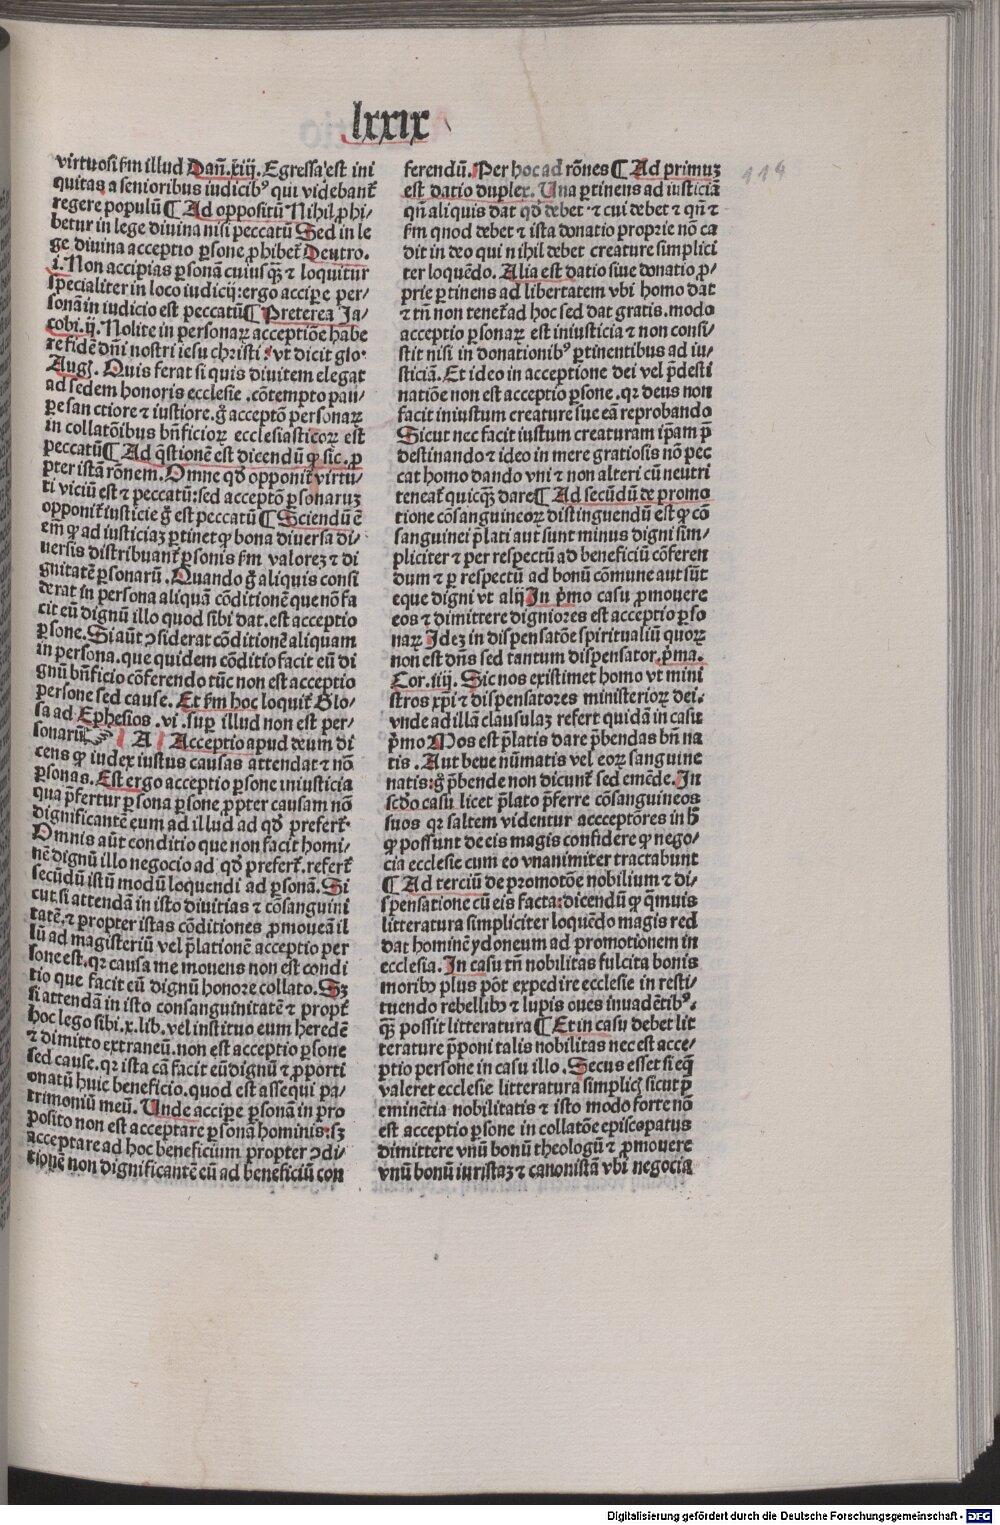 lxxix
114
virtuosi fm illud Dañ.xiij. Egressa est ini
quitas a senioribus iudicibꝰ qui videbant᷑
regere populū ¶ Ad oppositū Nihil ꝓhi/
betur in lege diuina nisi peccatū Sed in le
ge diuina acceptio ꝑsone ꝓhibet᷑ Deutro.
i. Non accipias ꝑsonā cuiusqꝫ ⁊ loquitur
specialiter in loco iudicij: ergo accipere per/
sonā in iudicio est peccatū ¶ Preterea Ja/
cobi.ij. Nolite in personaꝝ acceptiōe habe
re fidē dn̄i nostri iesu christi : vt dicit glo.
Augꝭ. Quis ferat si quis diuitem elegat
ad sedem honoris ecclesie .cōtempto pau/
ꝑe sanctiore ⁊ iustiore. g̊ acceptō personaꝝ
in collatōibus bn̄ficioꝝ ecclesiasticoꝝ est
peccatū ¶ Ad q̄stionē est dicendū ꝙ sic. ꝓ
pter istā rōnem. Omne qd̓ opponit᷑ virtu/
ti viciū est ⁊ peccatū: sed acceptō ꝑsonaruꝫ
opponit᷑ iusticie g̊ est peccatū ¶ Sciendū ē
em̄ ꝙ ad iusticiaꝫ ꝑtinet ꝙ bona diuersa di/
uersis distribuant᷑ ꝑsonis fm valoreꝫ ⁊ di
gnitatē ꝑsonarū. Quando g̊ aliquis consi
derat in persona aliquā cōditionē que nō fa
cit eū dignū illo quod sibi dat. est acceptio
ꝑsone. Si aūt ꝯsiderat cōditionē aliquam
in persona. que quidem cōditio facit eū di
gnū bn̄ficio cōferendo tūc non est acceptio
persone sed cause. Et fm hoc loquit᷑ Glo/
sa ad Ephesios .vi. suꝑ illud non est per/
sonarū ☞ A Acceptio apud deum di
cens ꝙ iudex iustus causas attendat ⁊ nō
ꝑsonas. Est ergo acceptio ꝑsone iniusticia
qua p̄fertur ꝑsona ꝑsone ꝓpter causam nō
dignificantē eum ad illud ad qd̓ prefert᷑.
Omnis aūt conditio que non facit homi/
nē dignū illo negocio ad qd̓ prefert᷑. refert᷑
secūdū istū modū loquendi ad ꝑsonā. Si
cut. si attendā in isto diuitias ⁊ cōsanguini
tatē. ⁊ propter istas cōditiones ꝓmoueā il
lū ad magisteriū vel p̄lationē acceptio per
sone est. qꝛ causa me mouens non est condi
tio que facit eū dignū honore collato. Sꝫ
si attendā in isto consanguinitatē ⁊ propt᷑
hoc lego sibi .x. lib. vel instituo eum heredē
⁊ dimitto extraneū. non est acceptio ꝑsone
sed cause. qꝛ ista cā facit eū dignū ⁊ ꝓporti
onatū huic beneficio. quod est assequi pa/
trimoniū meū. Unde accipe ꝑsonā in pro
posito non est acceptare ꝑsonā hominis: sꝫ
acceptare ad hoc beneficium propter ꝯdi/
tionē non dignificantē eū ad beneficiū con
ferendū. Per hoc ad rōnes ¶ Ad primuꝫ
est datio duplex. Una ꝑtinens ad iusticiā
qn̄ aliquis dat qd̓ debet ⁊ cui debet ⁊ qn̄ ⁊
fm quod debet ⁊ ista donatio proprie nō ca
dit in deo qui nihil debet creature simplici
ter loquēdo. Alia est datio siue donatio ꝓ/
prie ꝑtinens ad libertatem vbi homo dat
⁊ tn̄ non tenet᷑ ad hoc sed dat gratis. modo
acceptio ꝑsonaꝝ est iniusticia ⁊ non consi/
stit nisi in donationibꝰ ꝑtinentibus ad iu/
sticiā. Et ideo in acceptione dei vel p̄desti
natiōe non est acceptio ꝑsone. qꝛ deus non
facit iniustum creature siue eā reprobando
Sicut nec facit iustum creaturam ip̄am p̄
destinando ⁊ ideo in mere gratiosis nō pec
cat homo dando vni ⁊ non alteri cū neutri
teneat᷑ quicqꝫ dare ¶ Ad secūdū de promo
tione cōsanguineoꝝ distinguendū est ꝙ cō
sanguinei p̄lati aut sunt minus digni sim/
pliciter ⁊ per respectū ad beneficiū cōferen
dum ⁊ ꝑ respectū ad bonū cōmune aut sūt
eque digni vt alij In p̄mo casu ꝓmouere
eos ⁊ dimittere digniores est acceptio ꝑso
naꝝ Jdeꝫ in dispensatōe spiritualiū quoꝝ
non est dn̄s sed tantum dispensator. p̄ma.
Cor.iiij. Sic nos existimet homo vt mini
stros xp̄i ⁊ dispensatores ministerioꝝ dei.
vnde ad illā clausulaꝫ refert quidā in casu
p̄mo Mos est p̄latis dare p̄bendas bn̄ na
tis. Aut beue nūmatis vel eoꝝ sanguine
natis: g̊ p̄bende non dicunt᷑ sed emēde. Jn
scd̓o casu licet p̄lato p̄ferre cōsanguineos
suos qꝛ saltem videntur accceptōres in hͦ
ꝙ possunt de eis magis confidere ꝙ nego/
cia ecclesie cum eo vnanimiter tractabunt
¶ Ad terciū de promotōe nobilium ⁊ di/
spensatione cū eis facta: dicendū ꝙ qm̄uis
litteratura simpliciter loquēdo magis red
dat hominē ydoneum ad promotionem in
ecclesia. Jn casu tn̄ nobilitas fulcita bonis
moribꝰ plus pōt expedire ecclesie in resti/
tuendo rebellibꝰ ⁊ lupis oues inuadētibꝰ.
qꝫ possit litteratura ¶ Et in casu debet lit
terature p̄poni talis nobilitas nec est acce/
ptio persone in casu illo. Secus esset si eqꝫ
valeret ecclesie litteratura simplicꝭ sicut p̄
eminētia nobilitatis ⁊ isto modo forte nō
est acceptio ꝑsone in collatōe episcopatus
dimittere vnū bonū theologū ⁊ ꝓmouere
vnū bonū iuristaꝫ ⁊ canonistā vbi negocia
Digitalisierung gefördert durch die Deutsche Forschungsgemeinschaft - DFG